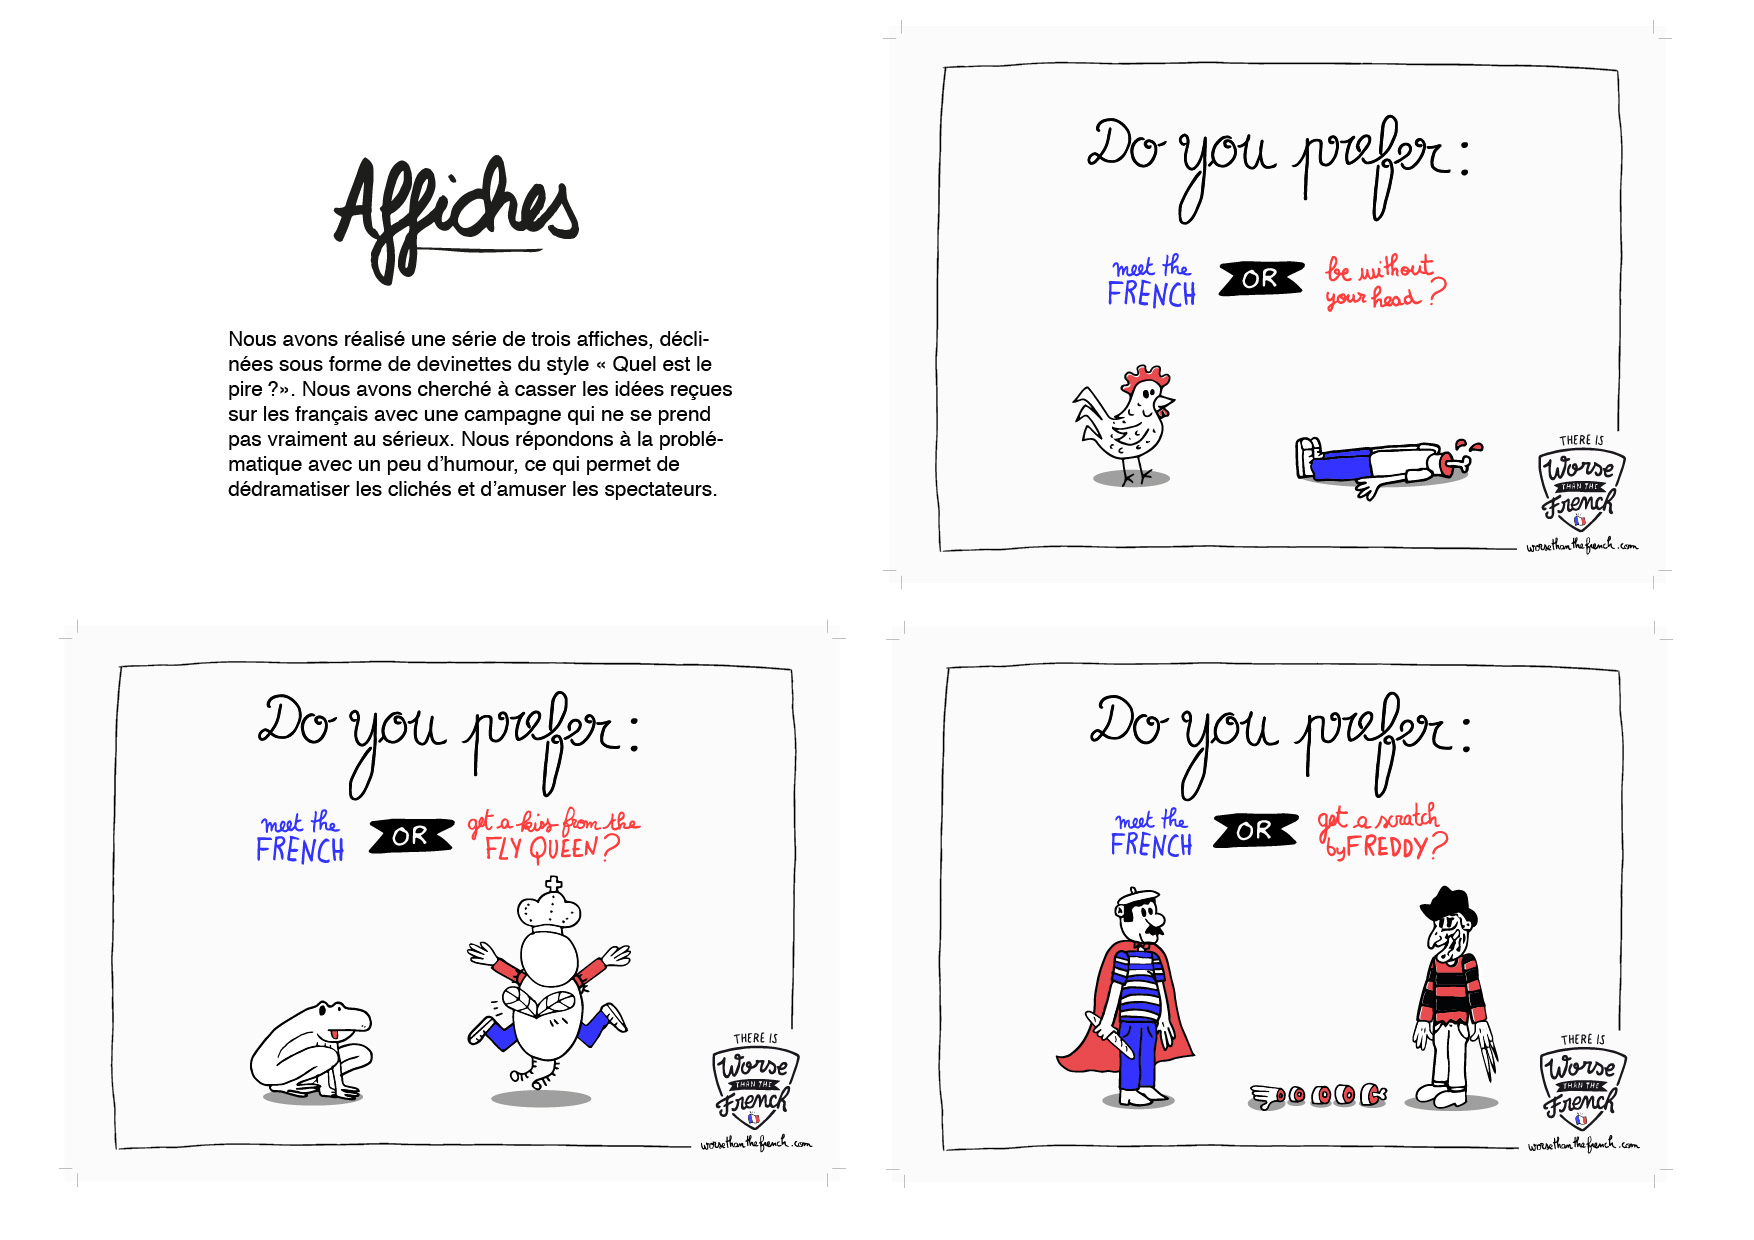 Affiches
Nous avons réalisé une série de trois affiches, décli-
nées sous forme de devinettes du style « Quel est le
pire ?». Nous avons cherché à casser les idées reçues
sur les français avec une campagne qui ne se prend
pas vraiment au sérieux. Nous répondons à la problé-
matique avec un peu d’humour, ce qui permet de
dédramatiser les clichés et d’amuser les spectateurs.
Do you prefer:
meet the
FRENCH
OR
be without
your head?
THERE IS
Worse
THAN THE
French
worsethanthefrench.com
Do you prefer:
meet the
FRENCH
OR
get a kiss from the
FLY QUEEN?
THERE IS
Worse
THAN THE
French
worsethanthefrench.com
Do you prefer:
meet the
FRENCH
OR
get a scratch
by FREDDY?
THERE IS
Worse
THAN THE
French
worsethanthefrench.com